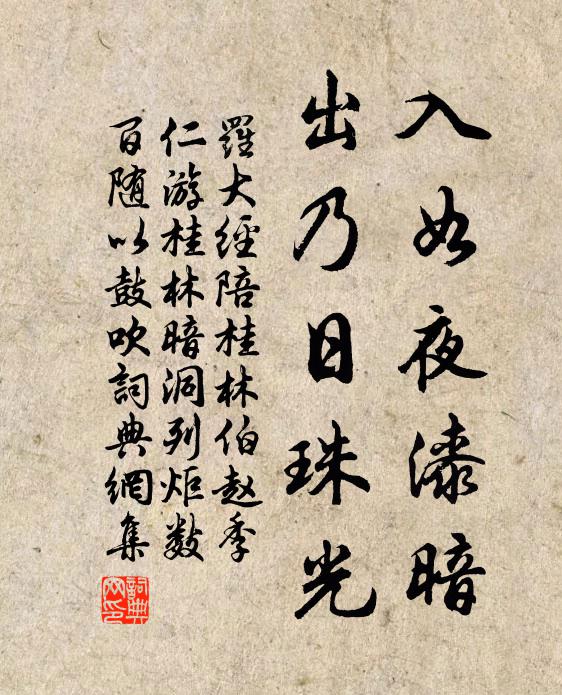 入如夜漆暗
出乃日珠光
羅大經陪桂林伯赵季
仁游桂林暗洞列炬数
百随以鼓吹詞典網集
詞典
网印